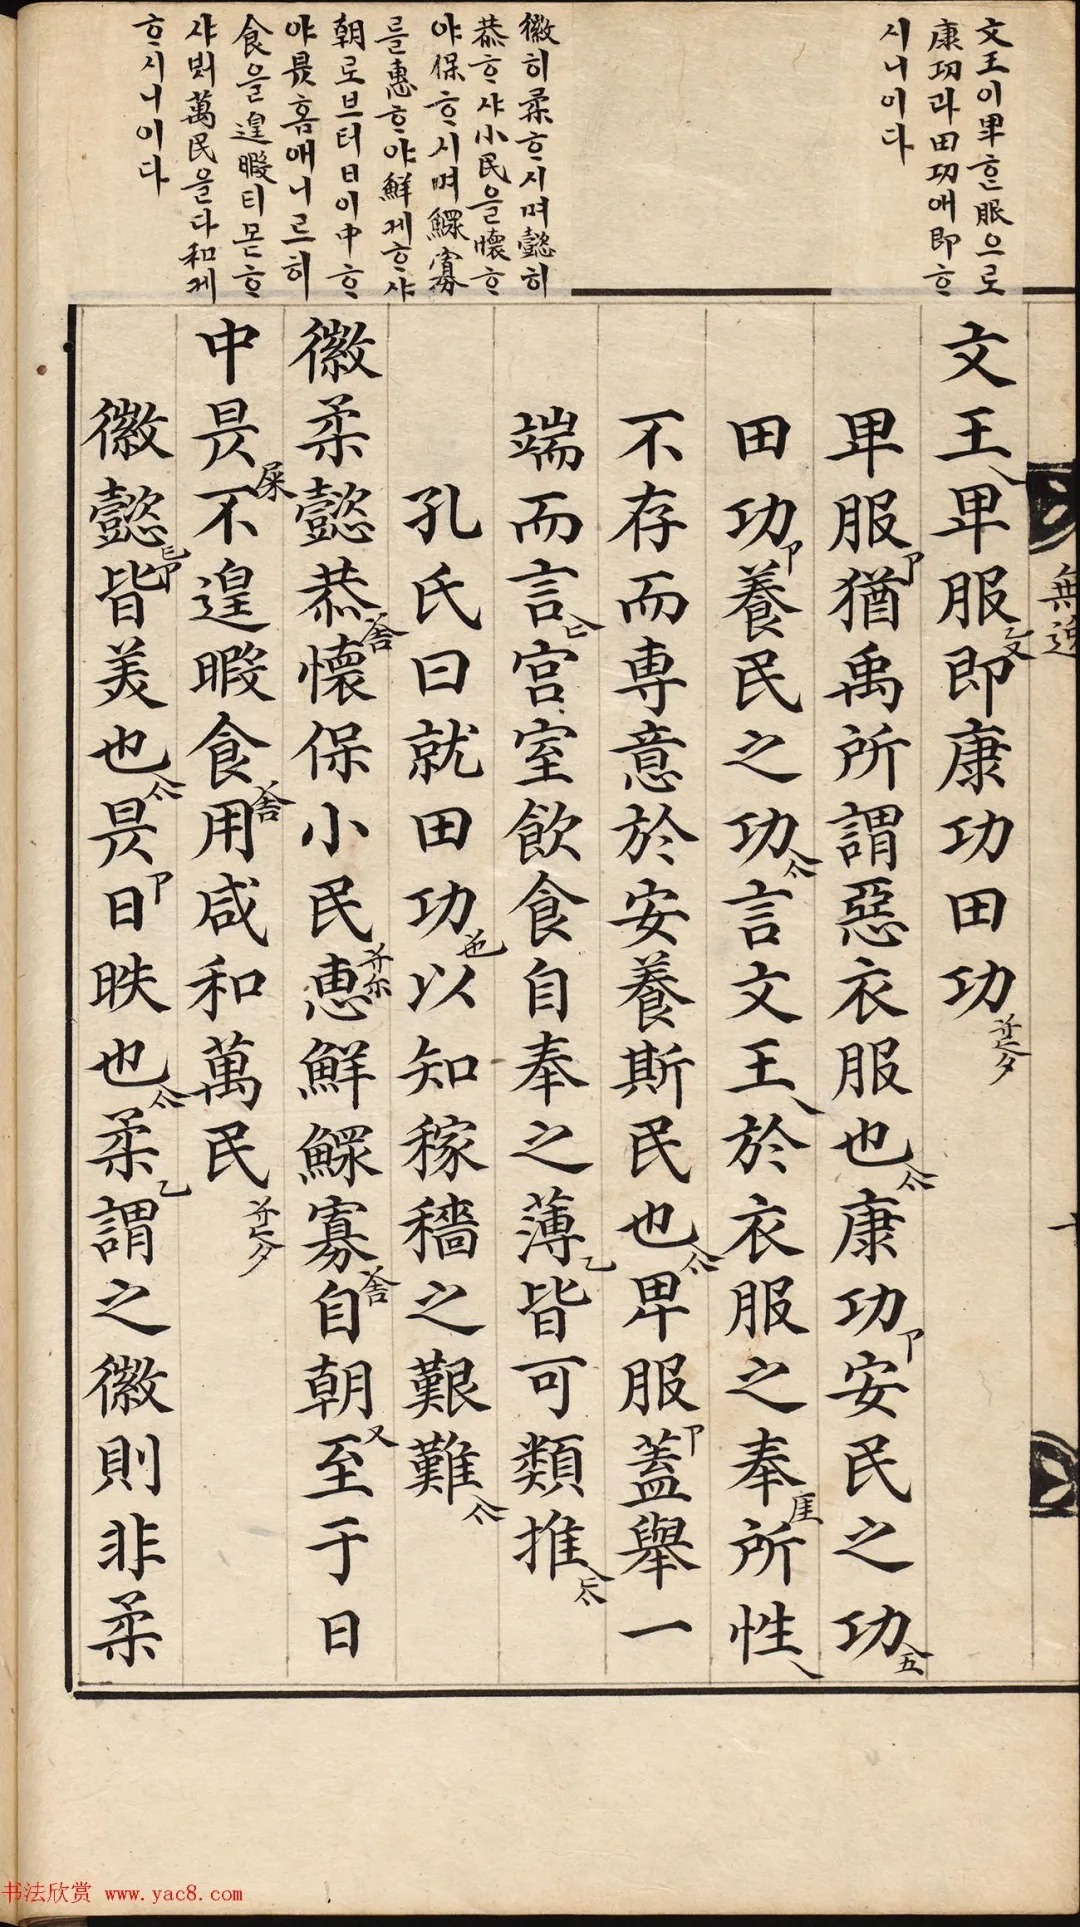 文王이卑ᄒᆞᆫ服으로
康功과田功애即ᄒᆞ
시니이다
徽히柔ᄒᆞ시며懿히
恭ᄒᆞ샤小民을懷ᄒᆞ
야保ᄒᆞ시며鰥寡
를惠ᄒᆞ야鮮케ᄒᆞ샤
朝로브터日이中ᄒᆞ
야昃홈애니르히
食을遑暇티몯ᄒᆞ
샤ᄡᅥ萬民을다和케
ᄒᆞ시니이다
無逸
文王卑服即康功田功
卑服猶禹所謂惡衣服也康功安民之功
田功養民之功言文王於衣服之奉所性
不存而專意於安養斯民也卑服蓋舉一
端而言宮室飲食自奉之薄皆可類推
孔氏曰就田功以知稼穡之艱難
徽柔懿恭懷保小民惠鮮鰥寡自朝至于日
中昃不遑暇食用咸和萬民
徽懿皆美也昃日昳也柔謂之徽則非柔
书法欣赏 www.yac8.com